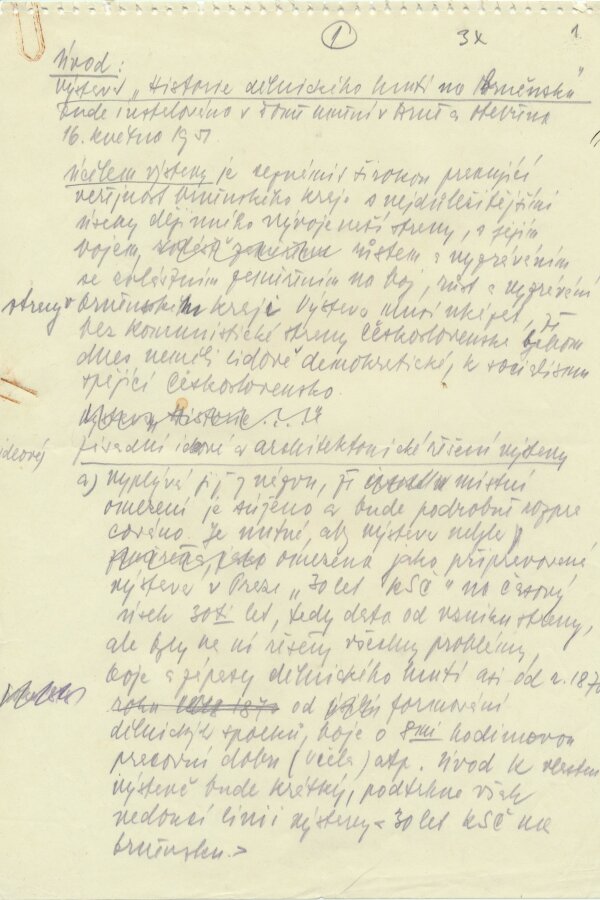 1 3x 1.
Úvod:
Výstava "Historie dělnického hnutí na Brněnsku"
bude instalována v Domě umění v Brně a otevřena
16. května 1951.
Účelem výstavy je seznámit širokou pracující
veřejnost brněnského kraje s nejdůležitějšími
úseky dějinného vývoje naší strany, s jejím
bojem, růstem a vyhráváním
se zvláštním na boj, růst a vyhrávání
strany v brněnském kraji. Výstava musí ukázat, že
bez Komunistické strany Československa bychom
dnes neměli lidově demokratické, k socialismu
spějící Československo.
výstavy Historie . . . .
ideový Zásadní ideové a architektonické řešení výstavy
a) vyplývá již z názvu, že místní
omezení je zúženo a bude podrobně rozpra
cováno. Je nutné, aby výstava nebyla
omezena jako připravovaná
výstava v Praze "30 let KSČ" na časový
úsek 30ti let, tedy data od vzniku strany,
ale byly na ní řešeny všechny problémy,
boje a zápasy dělnického hnutí asi od r. 1870
roku od formování
dělnických spolků, boje o 8mi hodinovou
pracovní dobu (včela) atp. Úvod k vlastní
výstavě bude krátký, podtrhne však
vedoucí linii výstavy = 30 let KSČ na
brněnsku.>